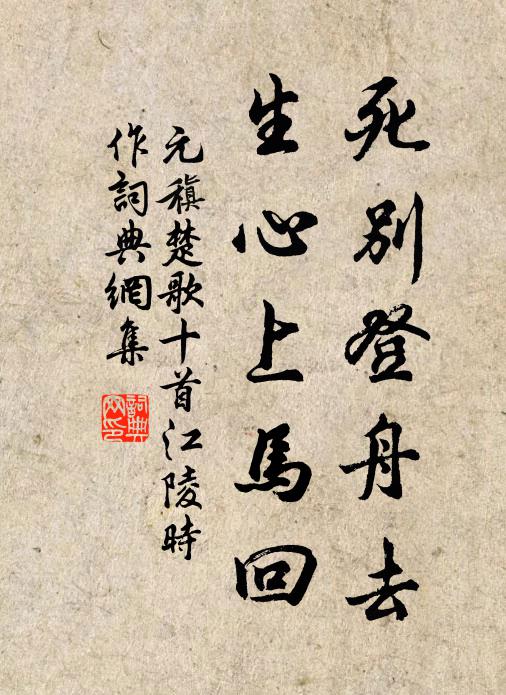 死别登舟去
生心上馬回
元稹楚歌十首江陵時
作詞典網集
詞典網印